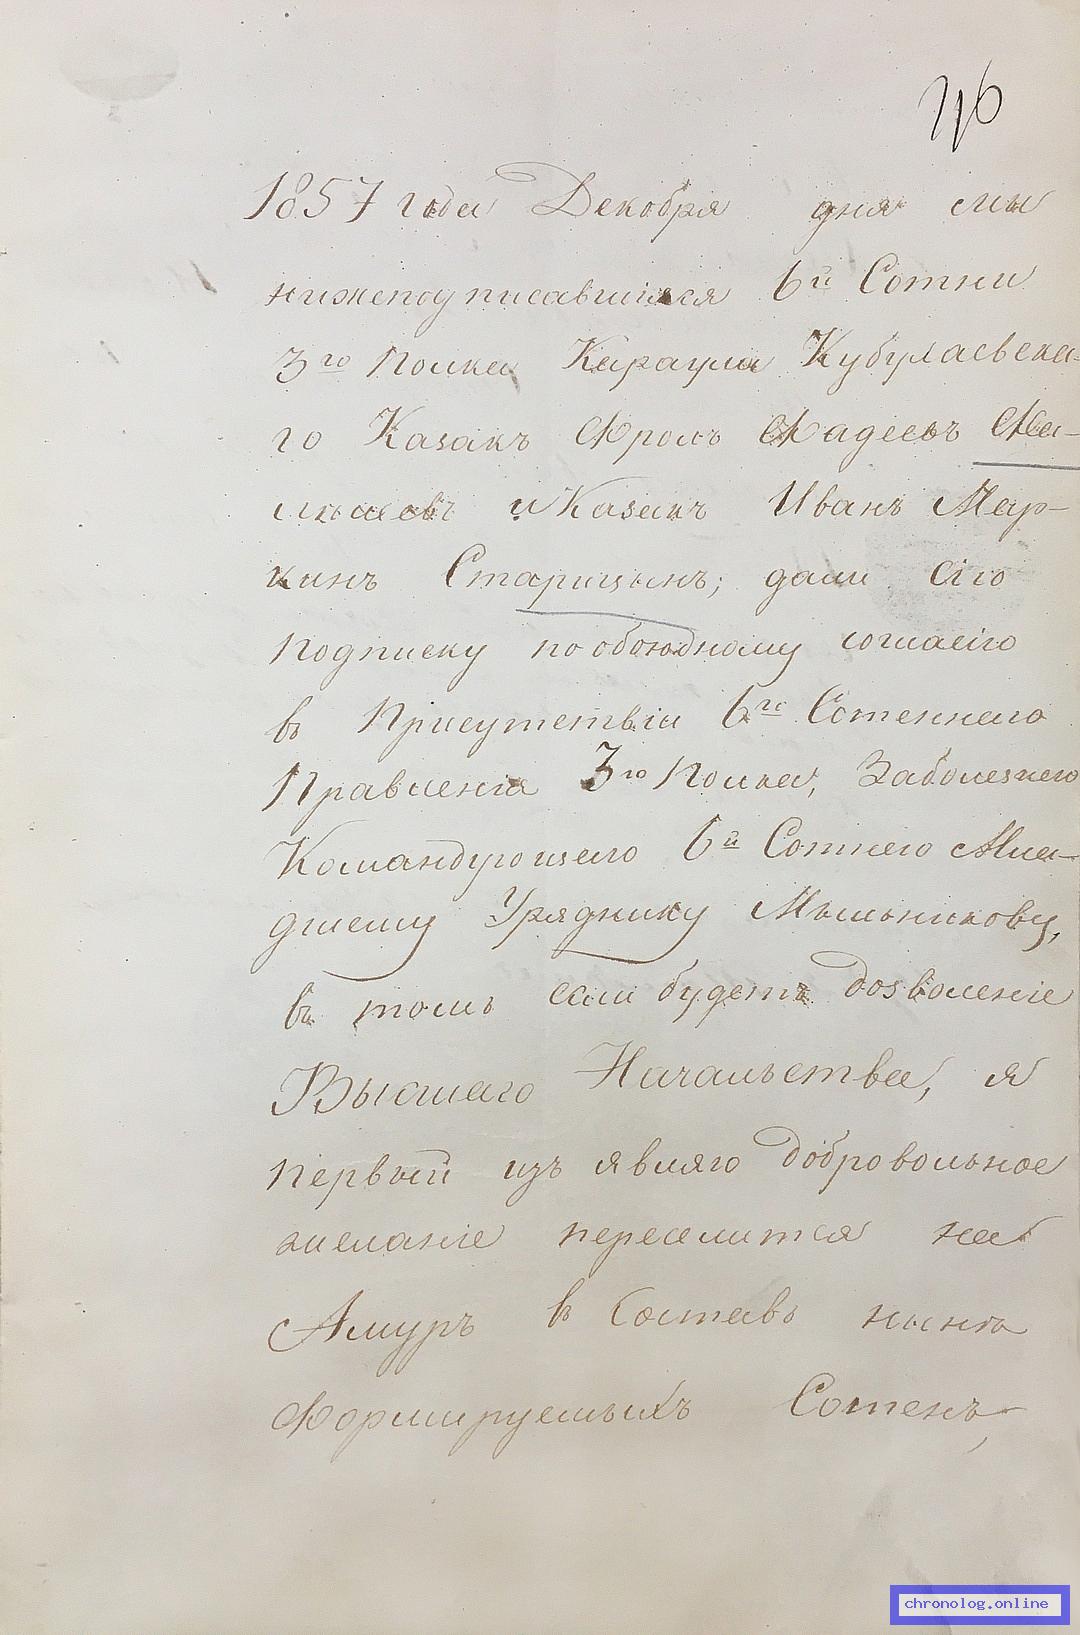 46
1857 года Декабря дня мы
нижеподписавшіяся 6й Сотни
3го Полка Караула Кубулаевска-
го Казакъ Фролъ Фадеевъ
и Казакъ Иванъ Мар-
кинъ Старицынъ; дали сію
подписку по обоюдному согласію
въ Присутствіи 6го Сотеннаго
Правленія 3го Полка, Заболезнего
Командующаго 6й Сотнею Мла-
дшему Уряднику Мыльникову,
въ томъ если будетъ дозволеніе
Высшаго Начальства, я
первый изъявляю добровольное
желаніе переселится на
Амуръ въ Составъ нынѣ
Формируемыхъ Сотенъ,
chronolog.online